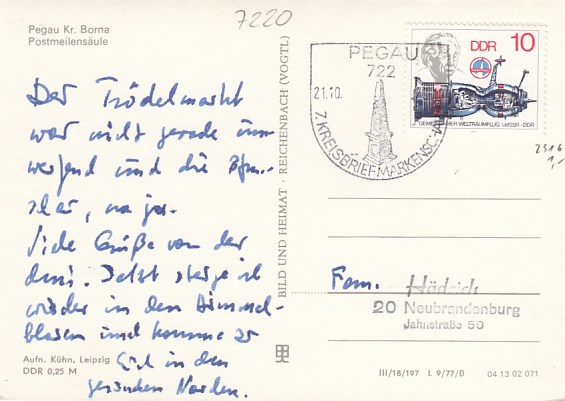 7220
Pegau Kr. Borna
Postmeilensäule
Der Trödelmarkt
war nicht gerade um-
werfend und die
Viele Grüße von der
Jetzt steige ich
wieder in den
und komme
in den
gesunden Norden.
Aufn. Kühn, Leipzig
DDR 0,25 M
BILD UND HEIMAT · REICHENBACH (VOGTL)
PEGAU
722
21.10.
7. KREISBRIEFMARKENSCHAU
DDR 10
GEMEINSAMER WELTRAUMFLUG UdSSR-DDR
2316
1,-
Fam. Hädrich
20 Neubrandenburg
Jahnstraße 50
III/18/197 L 9/77/B 04 13 02 071